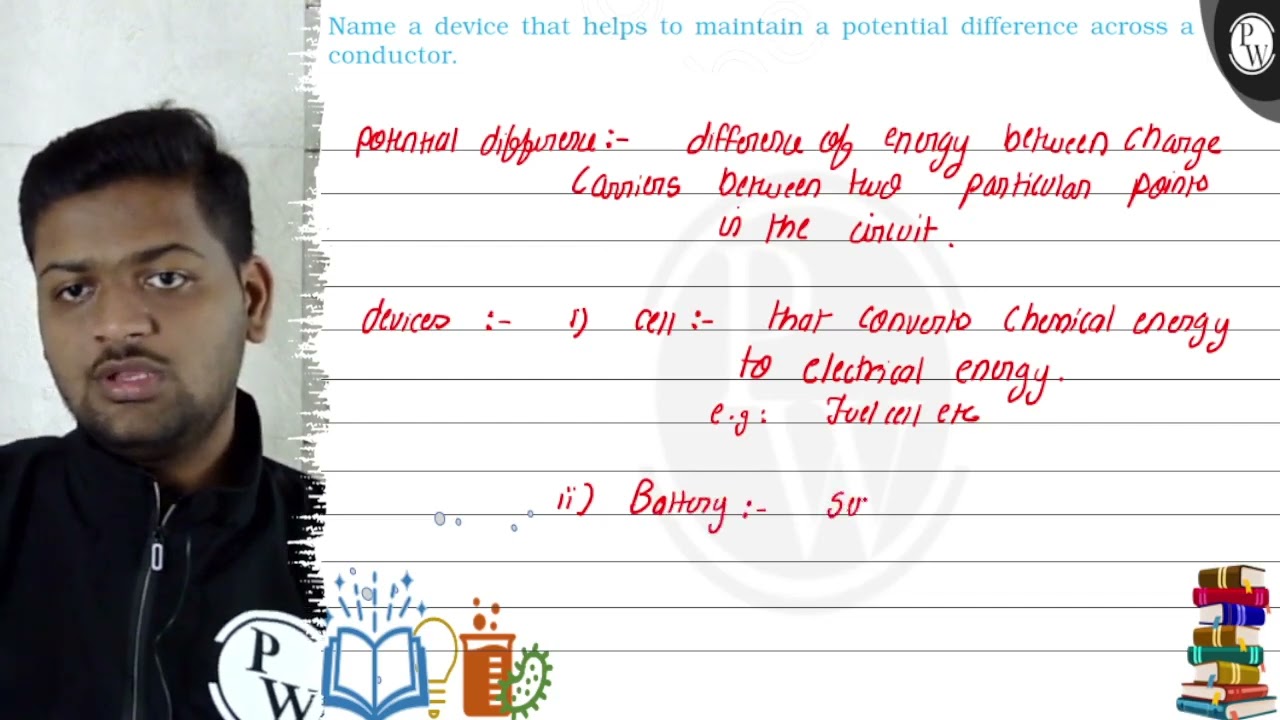 Name a device that helps to maintain a potential difference across a
conductor.
P
W
potential difference :- difference of energy between charge
carriers between two particular points
in the circuit.
devices :- i) cell :- that converts chemical energy
to electrical energy.
e.g: Fuel cell etc
ii) Battery :- so
P
W